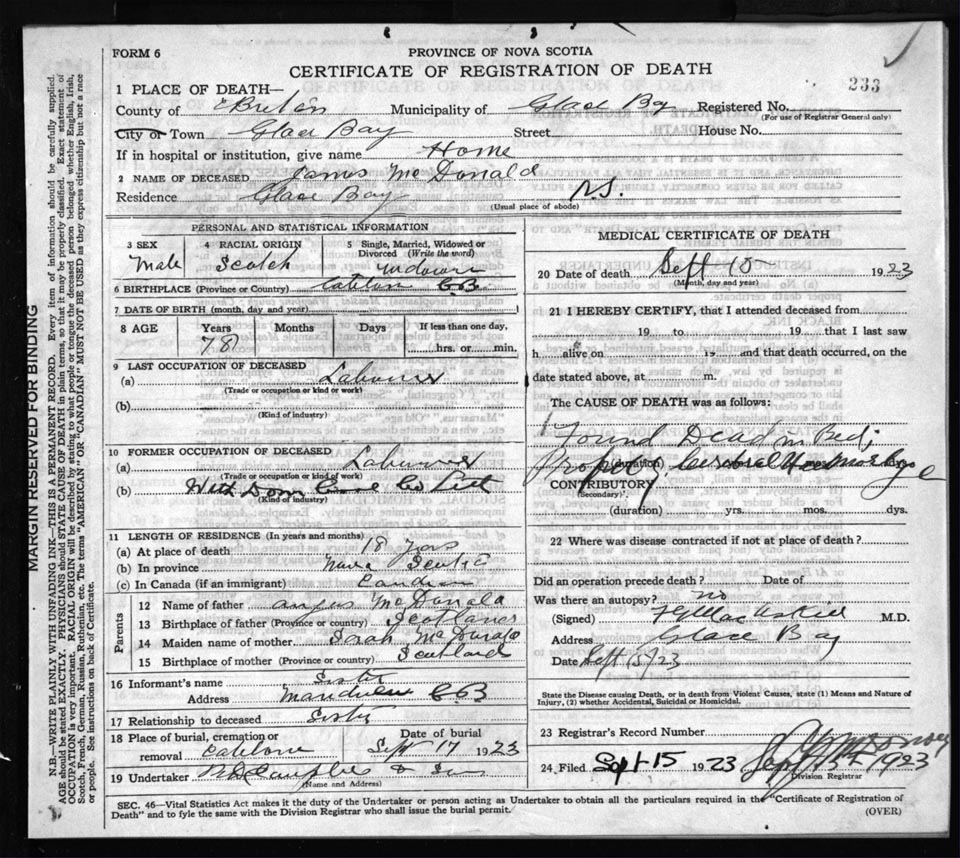 FORM 6
PROVINCE OF NOVA SCOTIA
CERTIFICATE OF REGISTRATION OF DEATH
233
1 PLACE OF DEATH—
County of C Breton Municipality of Glace Bay Registered No.
(For use of Registrar General only)
City or Town Glace Bay Street House No.
If in hospital or institution, give name Home
2 NAME OF DECEASED James McDonald
Residence Glace Bay N.S.
(Usual place of abode)
PERSONAL AND STATISTICAL INFORMATION
3 SEX 4 RACIAL ORIGIN 5 Single, Married, Widowed or Divorced (Write the word)
Male Scotch Widower
6 BIRTHPLACE (Province or Country) Catalone C.B.
7 DATE OF BIRTH (month, day and year)
8 AGE Years Months Days If less than one day,
78 hrs. or min.
9 LAST OCCUPATION OF DECEASED
(a) Labourer
(Trade or occupation or kind of work)
(b)
(Kind of industry)
10 FORMER OCCUPATION OF DECEASED
(a) Labourer
(Trade or occupation or kind of work)
(b) With Dom Coal Co Ltd
(Kind of industry)
11 LENGTH OF RESIDENCE (In years and months)
(a) At place of death 18 years
(b) In province Nova Scotia
(c) In Canada (if an immigrant)
Parents
12 Name of father Angus McDonald
13 Birthplace of father (Province or country) Scotland
14 Maiden name of mother Sarah McDonald
15 Birthplace of mother (Province or country) Scotland
16 Informant's name Sister
Address C.B
17 Relationship to deceased Sister
18 Place of burial, cremation or removal Catalone Date of burial Sept 17 1923
19 Undertaker & Son
(Name and Address)
MEDICAL CERTIFICATE OF DEATH
20 Date of death Sept 15 1923
(Month, day and year)
21 I HEREBY CERTIFY, that I attended deceased from
19 to 19 that I last saw
h alive on 19 and that death occurred, on the
date stated above, at m.
The CAUSE OF DEATH was as follows:
Found Dead in Bed;
Probably Cerebral Hemorrhage
CONTRIBUTORY
(Secondary)
(duration) yrs. mos. dys.
22 Where was disease contracted if not at place of death?
Did an operation precede death? Date of
Was there an autopsy? no
(Signed) M.D.
Address Glace Bay
Date Sept 15/23
State the Disease causing Death, or in death from Violent Causes, state (1) Means and Nature of Injury, (2) whether Accidental, Suicidal or Homicidal.
23 Registrar's Record Number
24 Filed Sept 15 1923 Sept 15th 1923
Division Registrar
SEC. 46—Vital Statistics Act makes it the duty of the Undertaker or person acting as Undertaker to obtain all the particulars required in the "Certificate of Registration of
Death" and to fyle the same with the Division Registrar who shall issue the burial permit. (OVER)
MARGIN RESERVED FOR BINDING
N.B.—WRITE PLAINLY WITH UNFADING INK—THIS IS A PERMANENT RECORD. Every item of information should be carefully supplied.
AGE should be stated EXACTLY. PHYSICIANS should STATE CAUSE OF DEATH in plain terms, so that it may be properly classified. Exact statement of
OCCUPATION is very important. RACIAL ORIGIN will be described by stating to what people or tongue the deceased person belonged whether English, Irish,
Scotch, French, German, Russian, Ruthenian, etc. The terms "AMERICAN" OR "CANADIAN" MUST NOT BE USED as they express citizenship but not a race
or people. See instructions on back of Certificate.